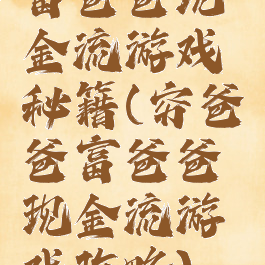 富爸爸现
金流游戏
秘籍(穷爸
爸富爸爸
现金流游
戏攻略)